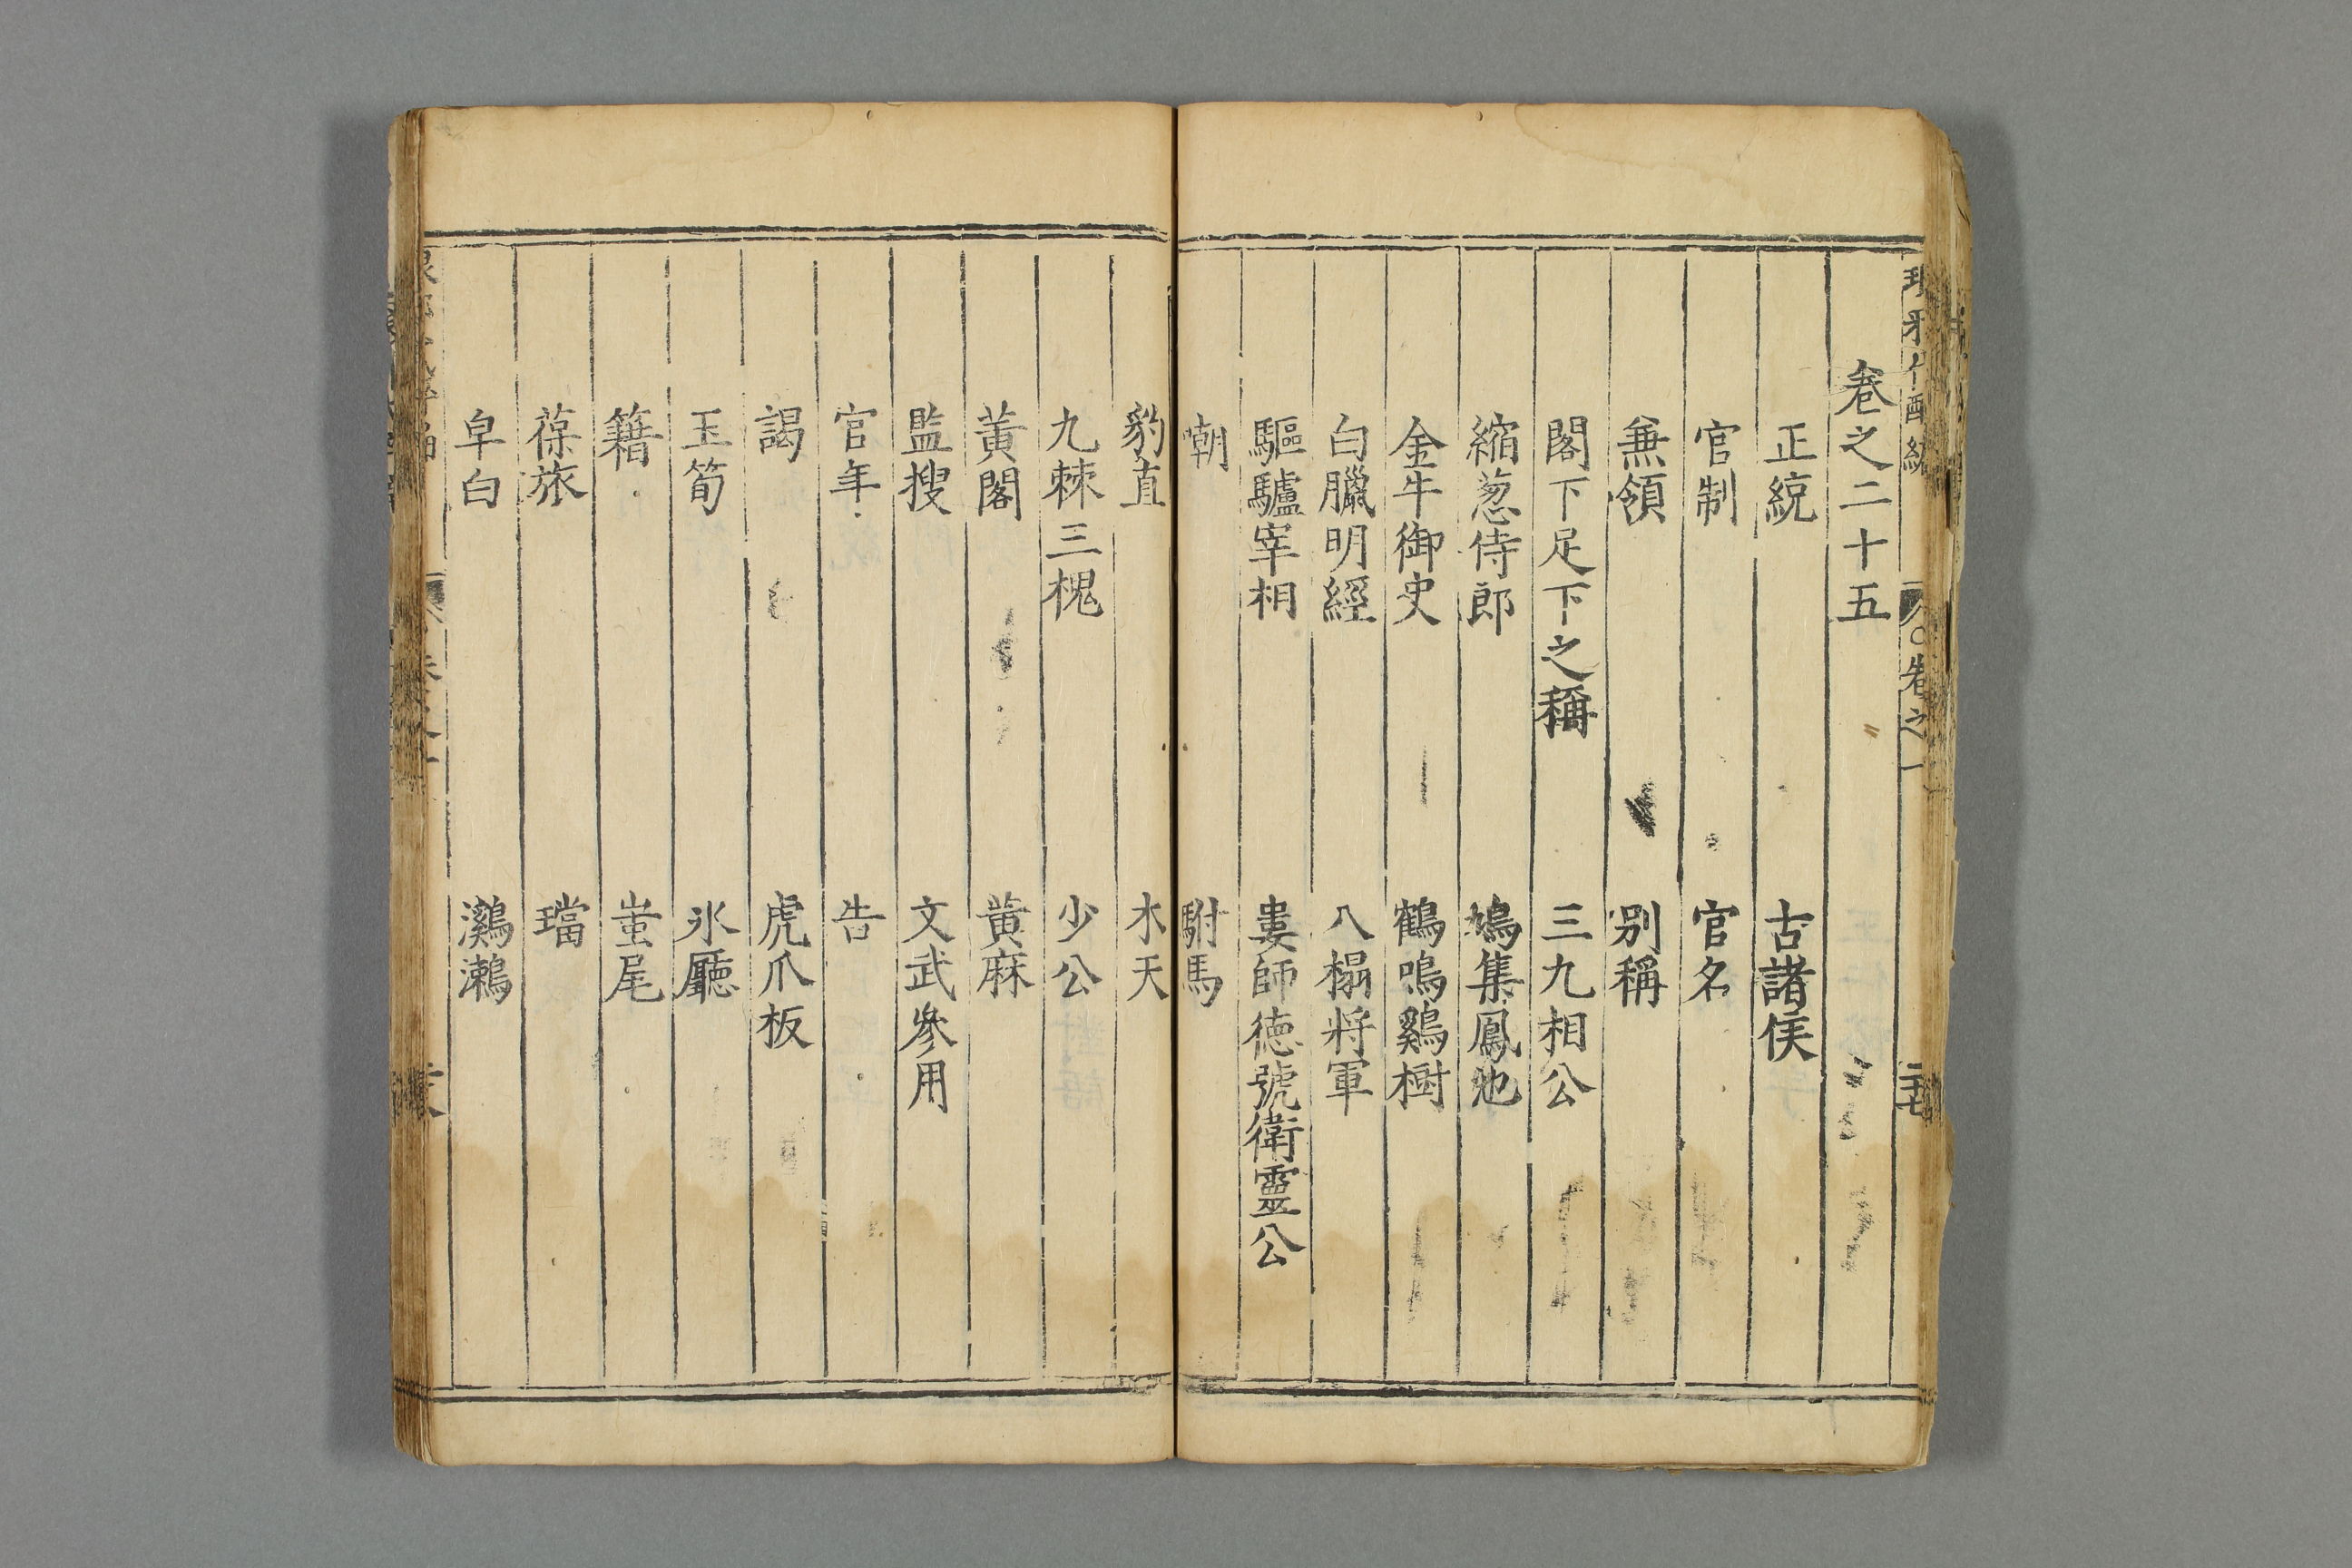 卷之二十五
正統 古諸侯
官制 官名
兼領 别稱
閣下足下之稱 三九相公
縮葱侍郎 鳩集鳳池
金牛御史 鶴鳴鷄樹
白臘明經 八榻將軍
驅驢宰相 婁師德號衛靈公
嘲 駙馬
豹直 木天
九棘三槐 少公
黃閣 黃麻
監搜 文武參用
官年 告
謁 虎爪板
玉筍 氷廳
籍 蚩尾
葆旅 璫
皁白 鸂鷘
卷之一